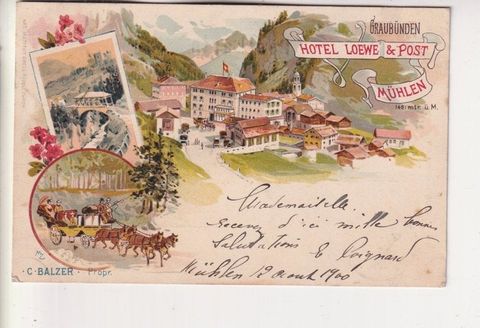 GRAUBÜNDEN
HOTEL LOEWE & POST
MÜHLEN
1461 mtr. ü. M.
Mademoiselle.
Recevez d'ici mille bonnes
Salutations E Coignard
Mühlen 2 aout 1900
C. BALZER Propr.